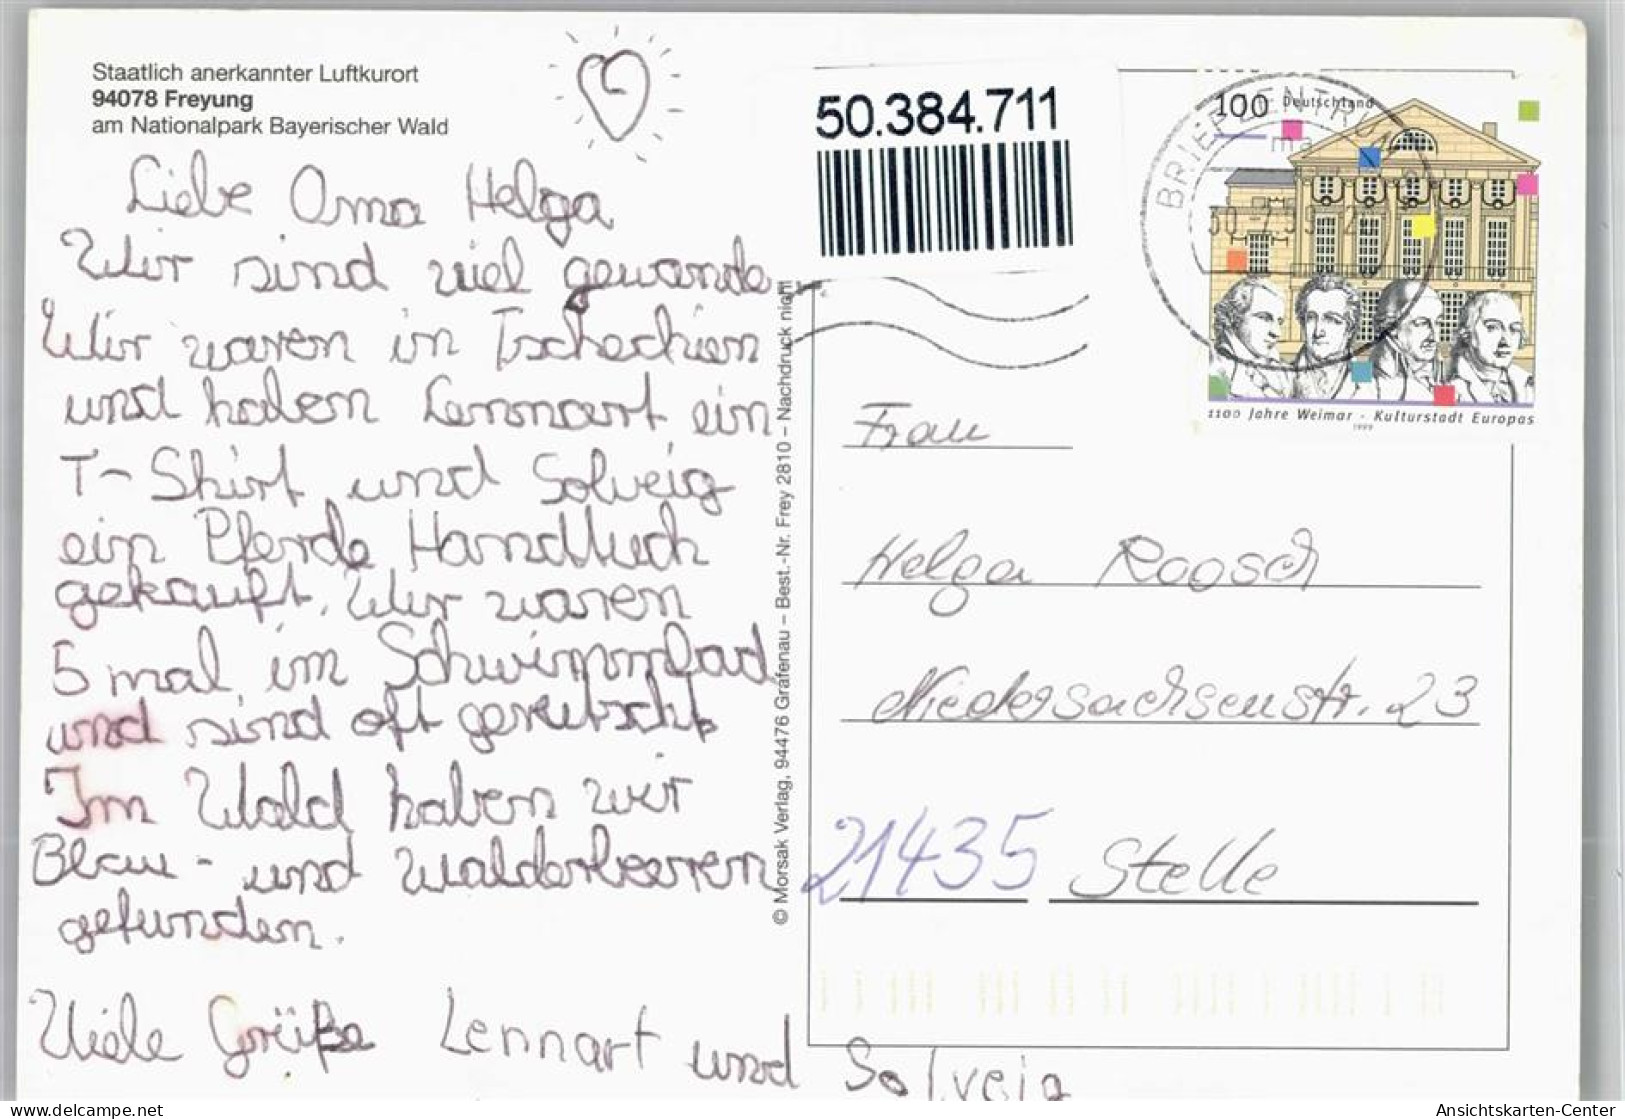 Staatlich anerkannter Luftkurort
94078 Freyung
am Nationalpark Bayerischer Wald
Liebe Oma Helga
Wir sind viel gewande
Wir waren in Tschechien
und haben Lennart ein
T-Shirt und Solveig
ein Pferde Handtuch
gekauft. Wir waren
5 mal im Schwimmbad
und sind oft gerutscht
Im Wald haben wir
Blau- und Walderbeeren
gefunden.
Viele Grüße Lennart und Solveig
© Morsak Verlag, 94476 Grafenau – Best.-Nr. Frey 2810 – Nachdruck nicht
50.384.711
100 Deutschland
BRIEFZENTRUM
1100 Jahre Weimar - Kulturstadt Europas
1999
Frau
Helga Roosch
Niedersachsenstr. 23
21435 Stelle
Ansichtskarten-Center